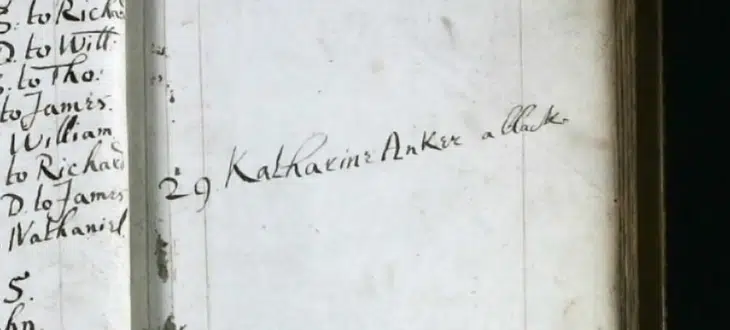 to Richard
D to Will:
to Tho:
to James
William
to Richard
D to James
Nathaniel
5.
29 Katharine Anker a black